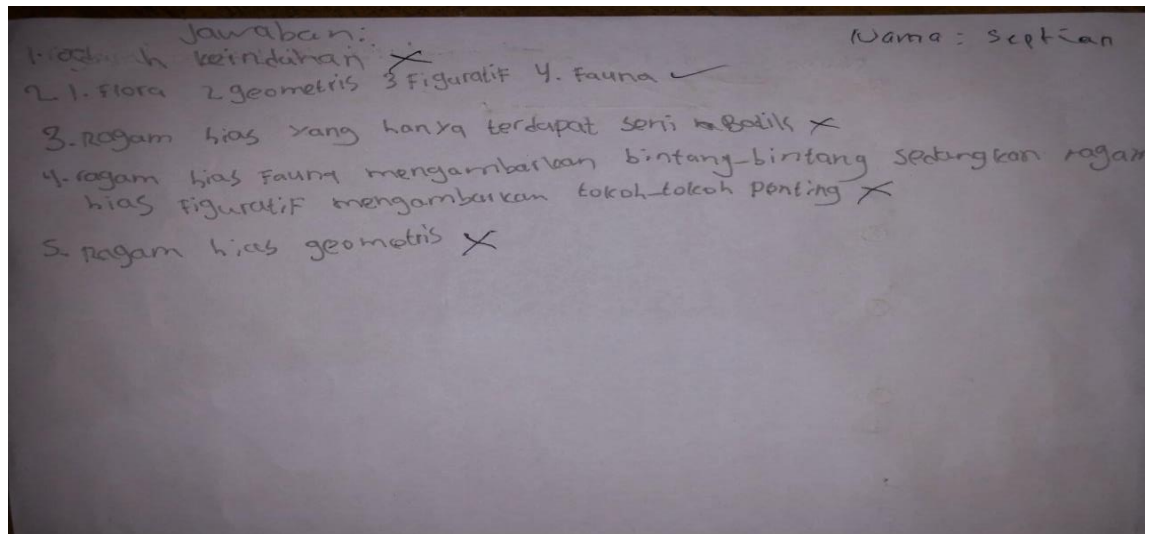 Jawaban:
Nama : Septian
1. keindahan
2. 1. Flora 2 geometris 3 Figuratif 4. Fauna
3. Ragam hias yang hanya terdapat seni Batik
4. ragam hias Fauna mengambarkan bintang-bintang sedangkan ragam
hias Figuratif mengambarkan tokoh-tokoh penting
5. Ragam hias geometris